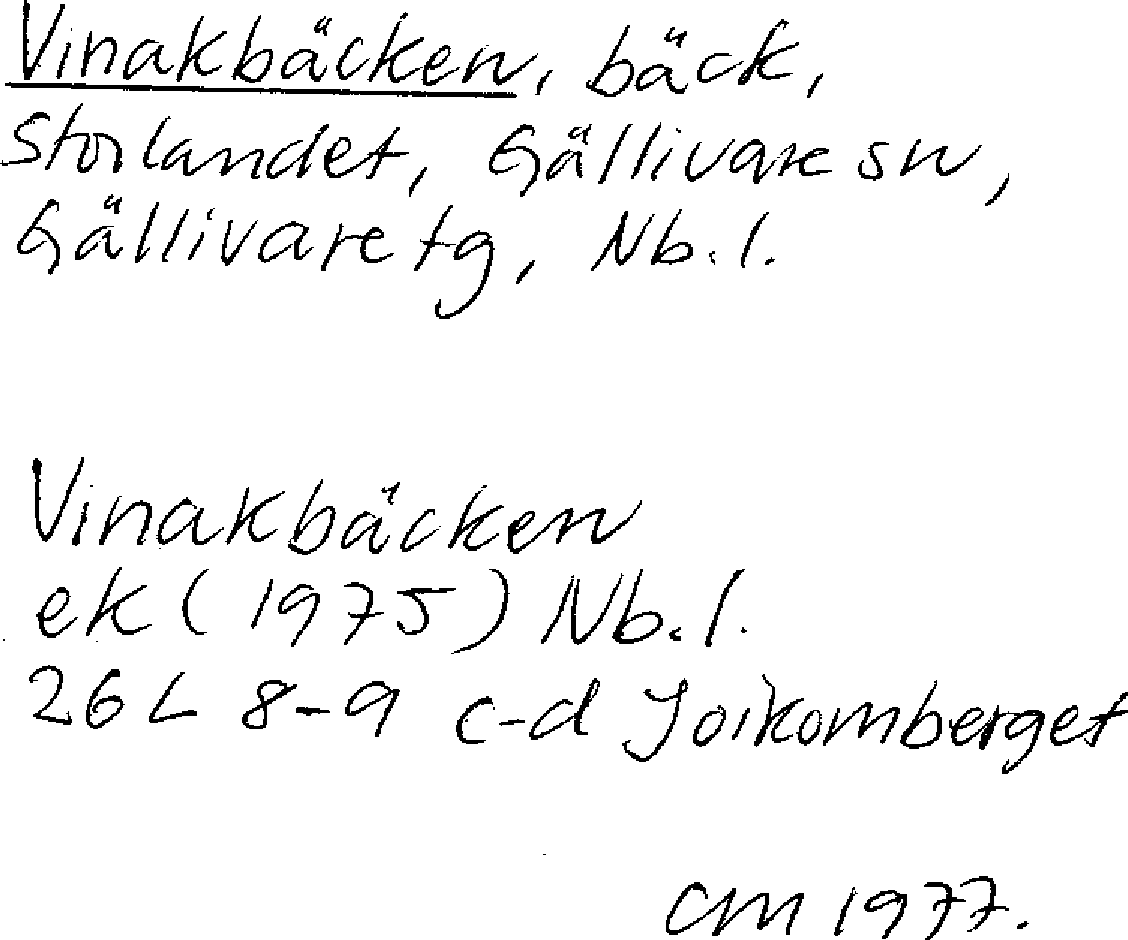 Vinakbäcken, bäck,
Storlandet, Gällivare sn,
Gällivare tg, Nb.l.
Vinakbäcken
ek (1975) Nb.l.
26L 8-9 c-d Joikomberget
CM 1977.